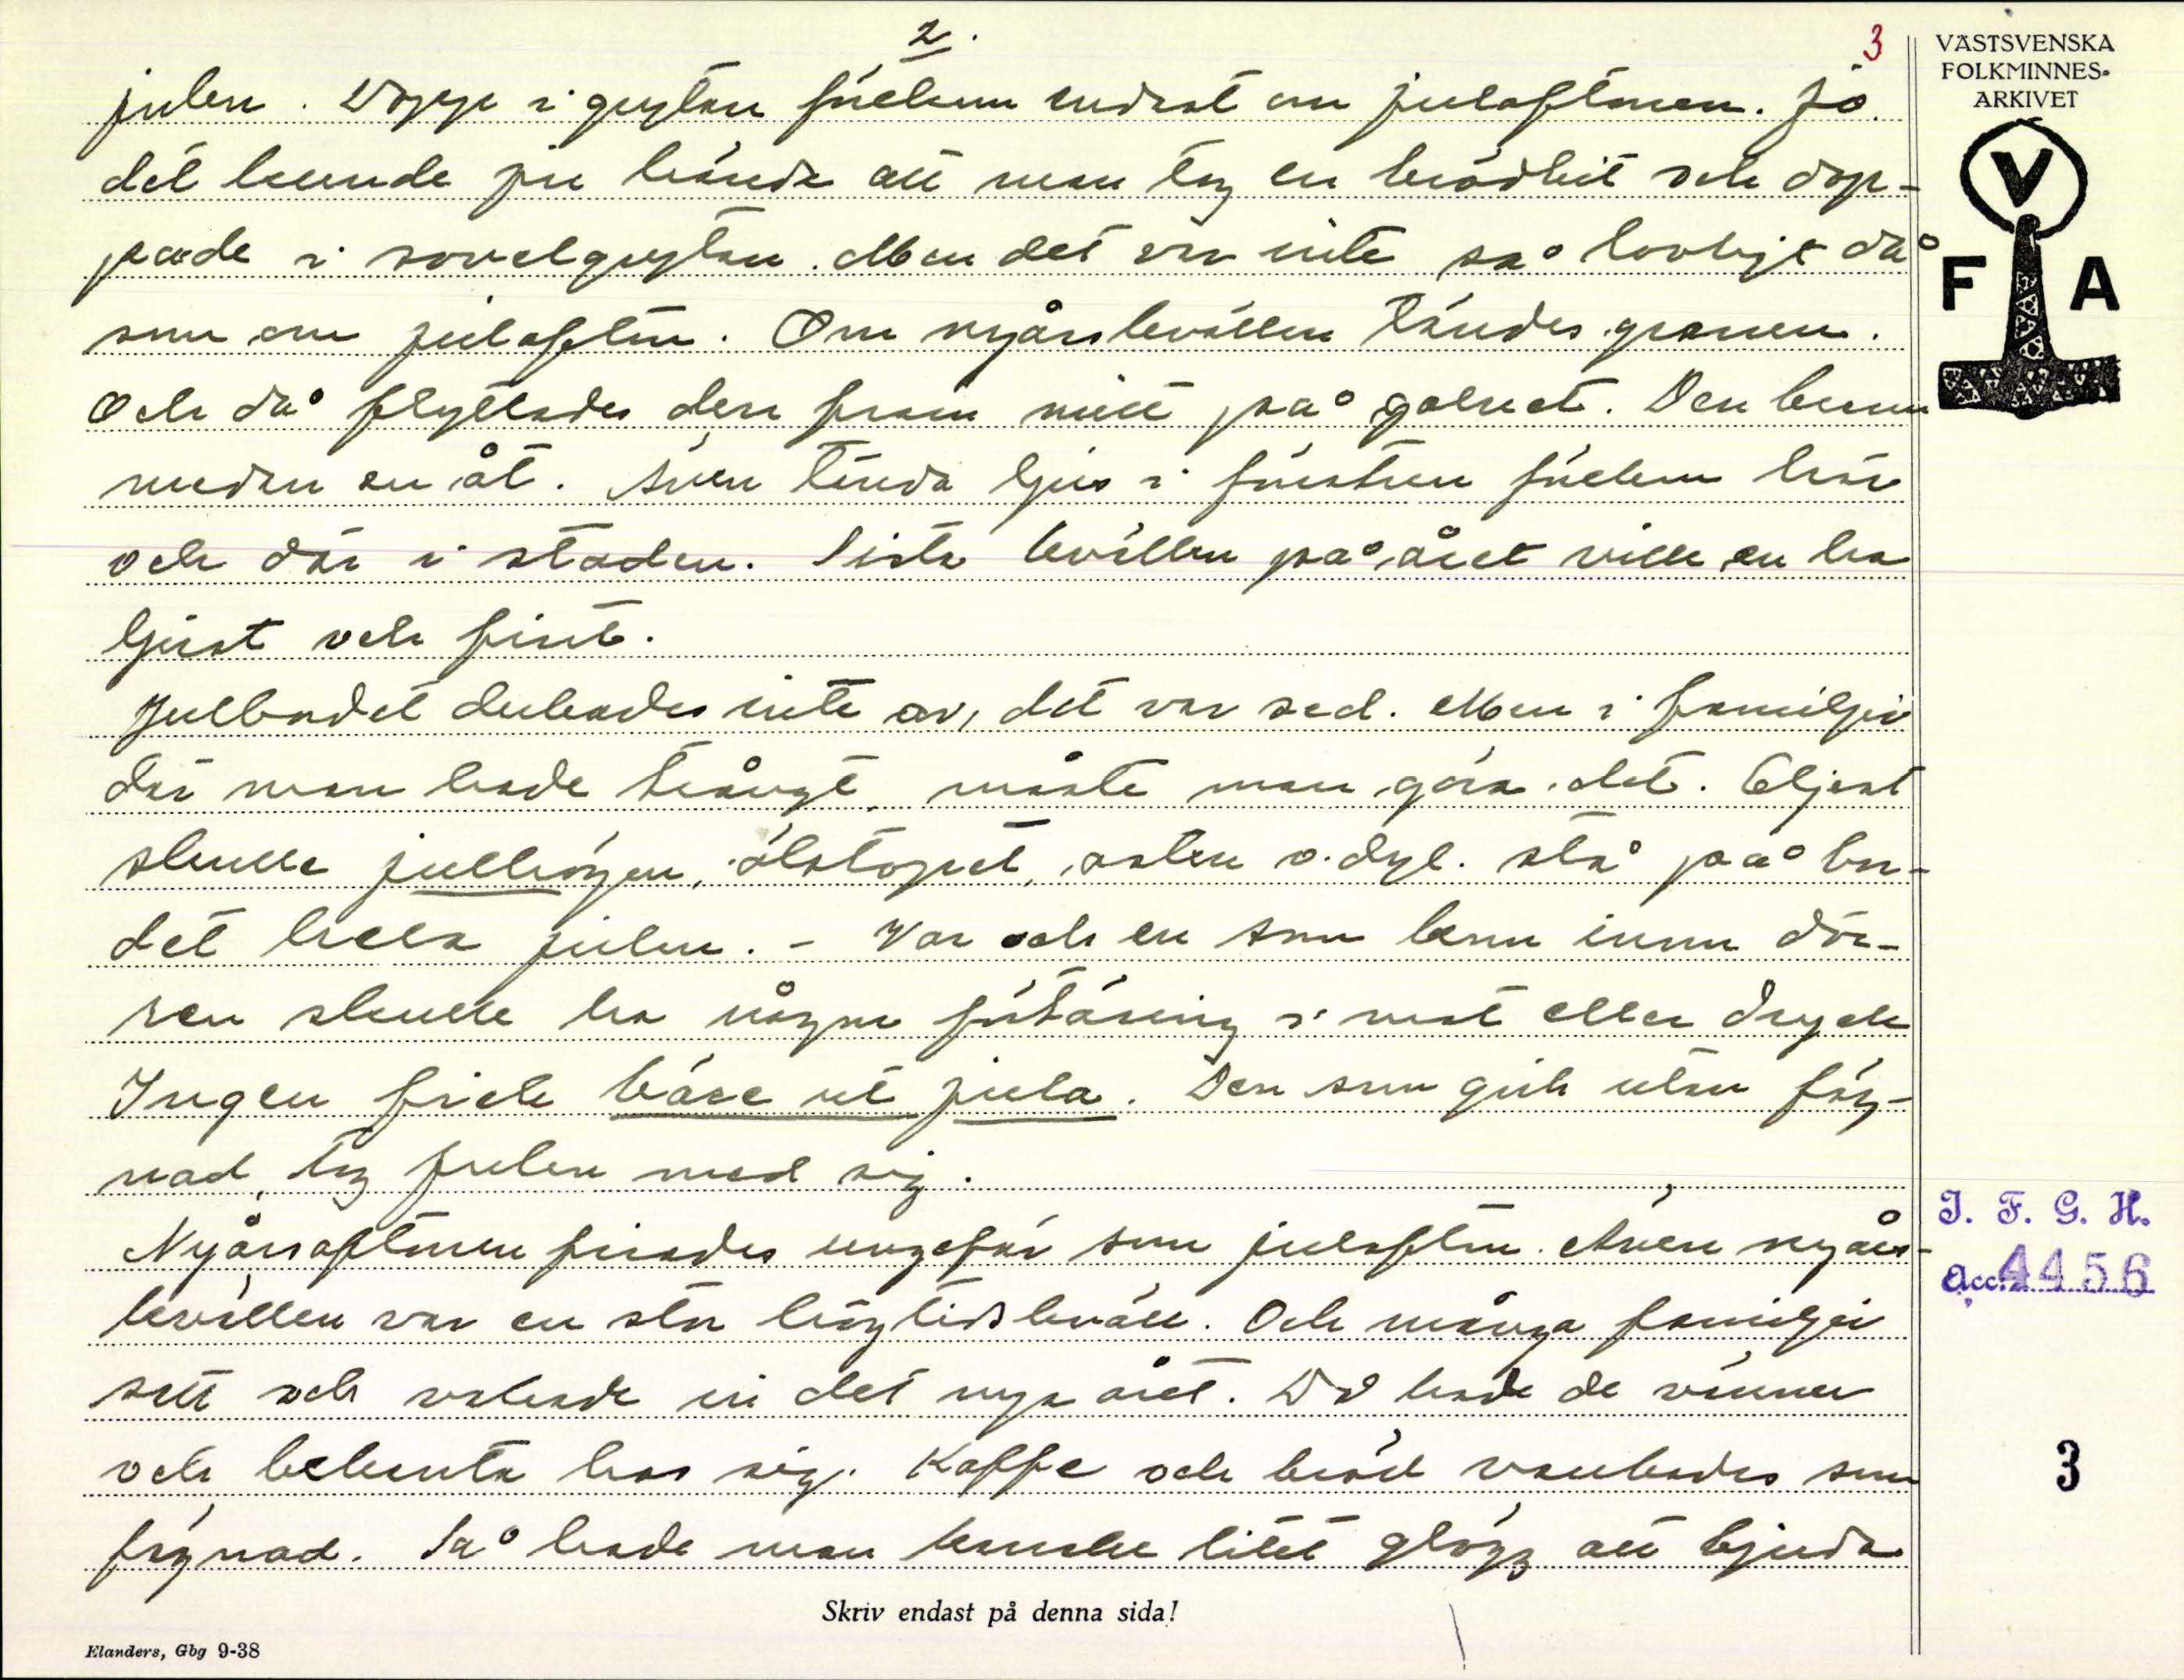 2.
3
VÄSTSVENSKA
FOLKMINNES-
ARKIVET
V
F A
julen. Doppe i grytan förekom endast om julaftonen. Jo
det kunde ju hända att man tog en brödbit och dop-
pade i sovelgrytan. Men det var inte så lovligt då
som om julafton. Om nyårskvällen tändes granen.
Och då flyttades den fram mitt på golvet. Den brann
medan en åt. Även tända ljus i fönstren förekom här
och där i staden. Sista kvällen på året ville en ha
ljust och fint.
Julbordet dukades inte av, det var sed. Men i familjer
där man hade trångt måste man göra det. Eljest
skulle julhögen, ölstopet, osten o. dyl. stå på bor-
det hela julen. - Var och en som kom inom dör-
ren skulle ha någon förtäring i mat eller dryck
Ingen fick bäre ut jula. Den som gick utan fäg-
nad, tog julen med sig.
Nyårsaftonen firades ungefär som julafton. Även nyårs-
kvällen var en stor högtidskväll. Och många familjer
satt och vakade in det nya året. Då hade de vänner
och bekanta hos sig. Kaffe och bröd vankades som
fägnad. Så hade man kanske litet glögg att bjuda
I. F. G. H.
Acc. 4456
3
Skriv endast på denna sida!
Elanders, Gbg 9-38